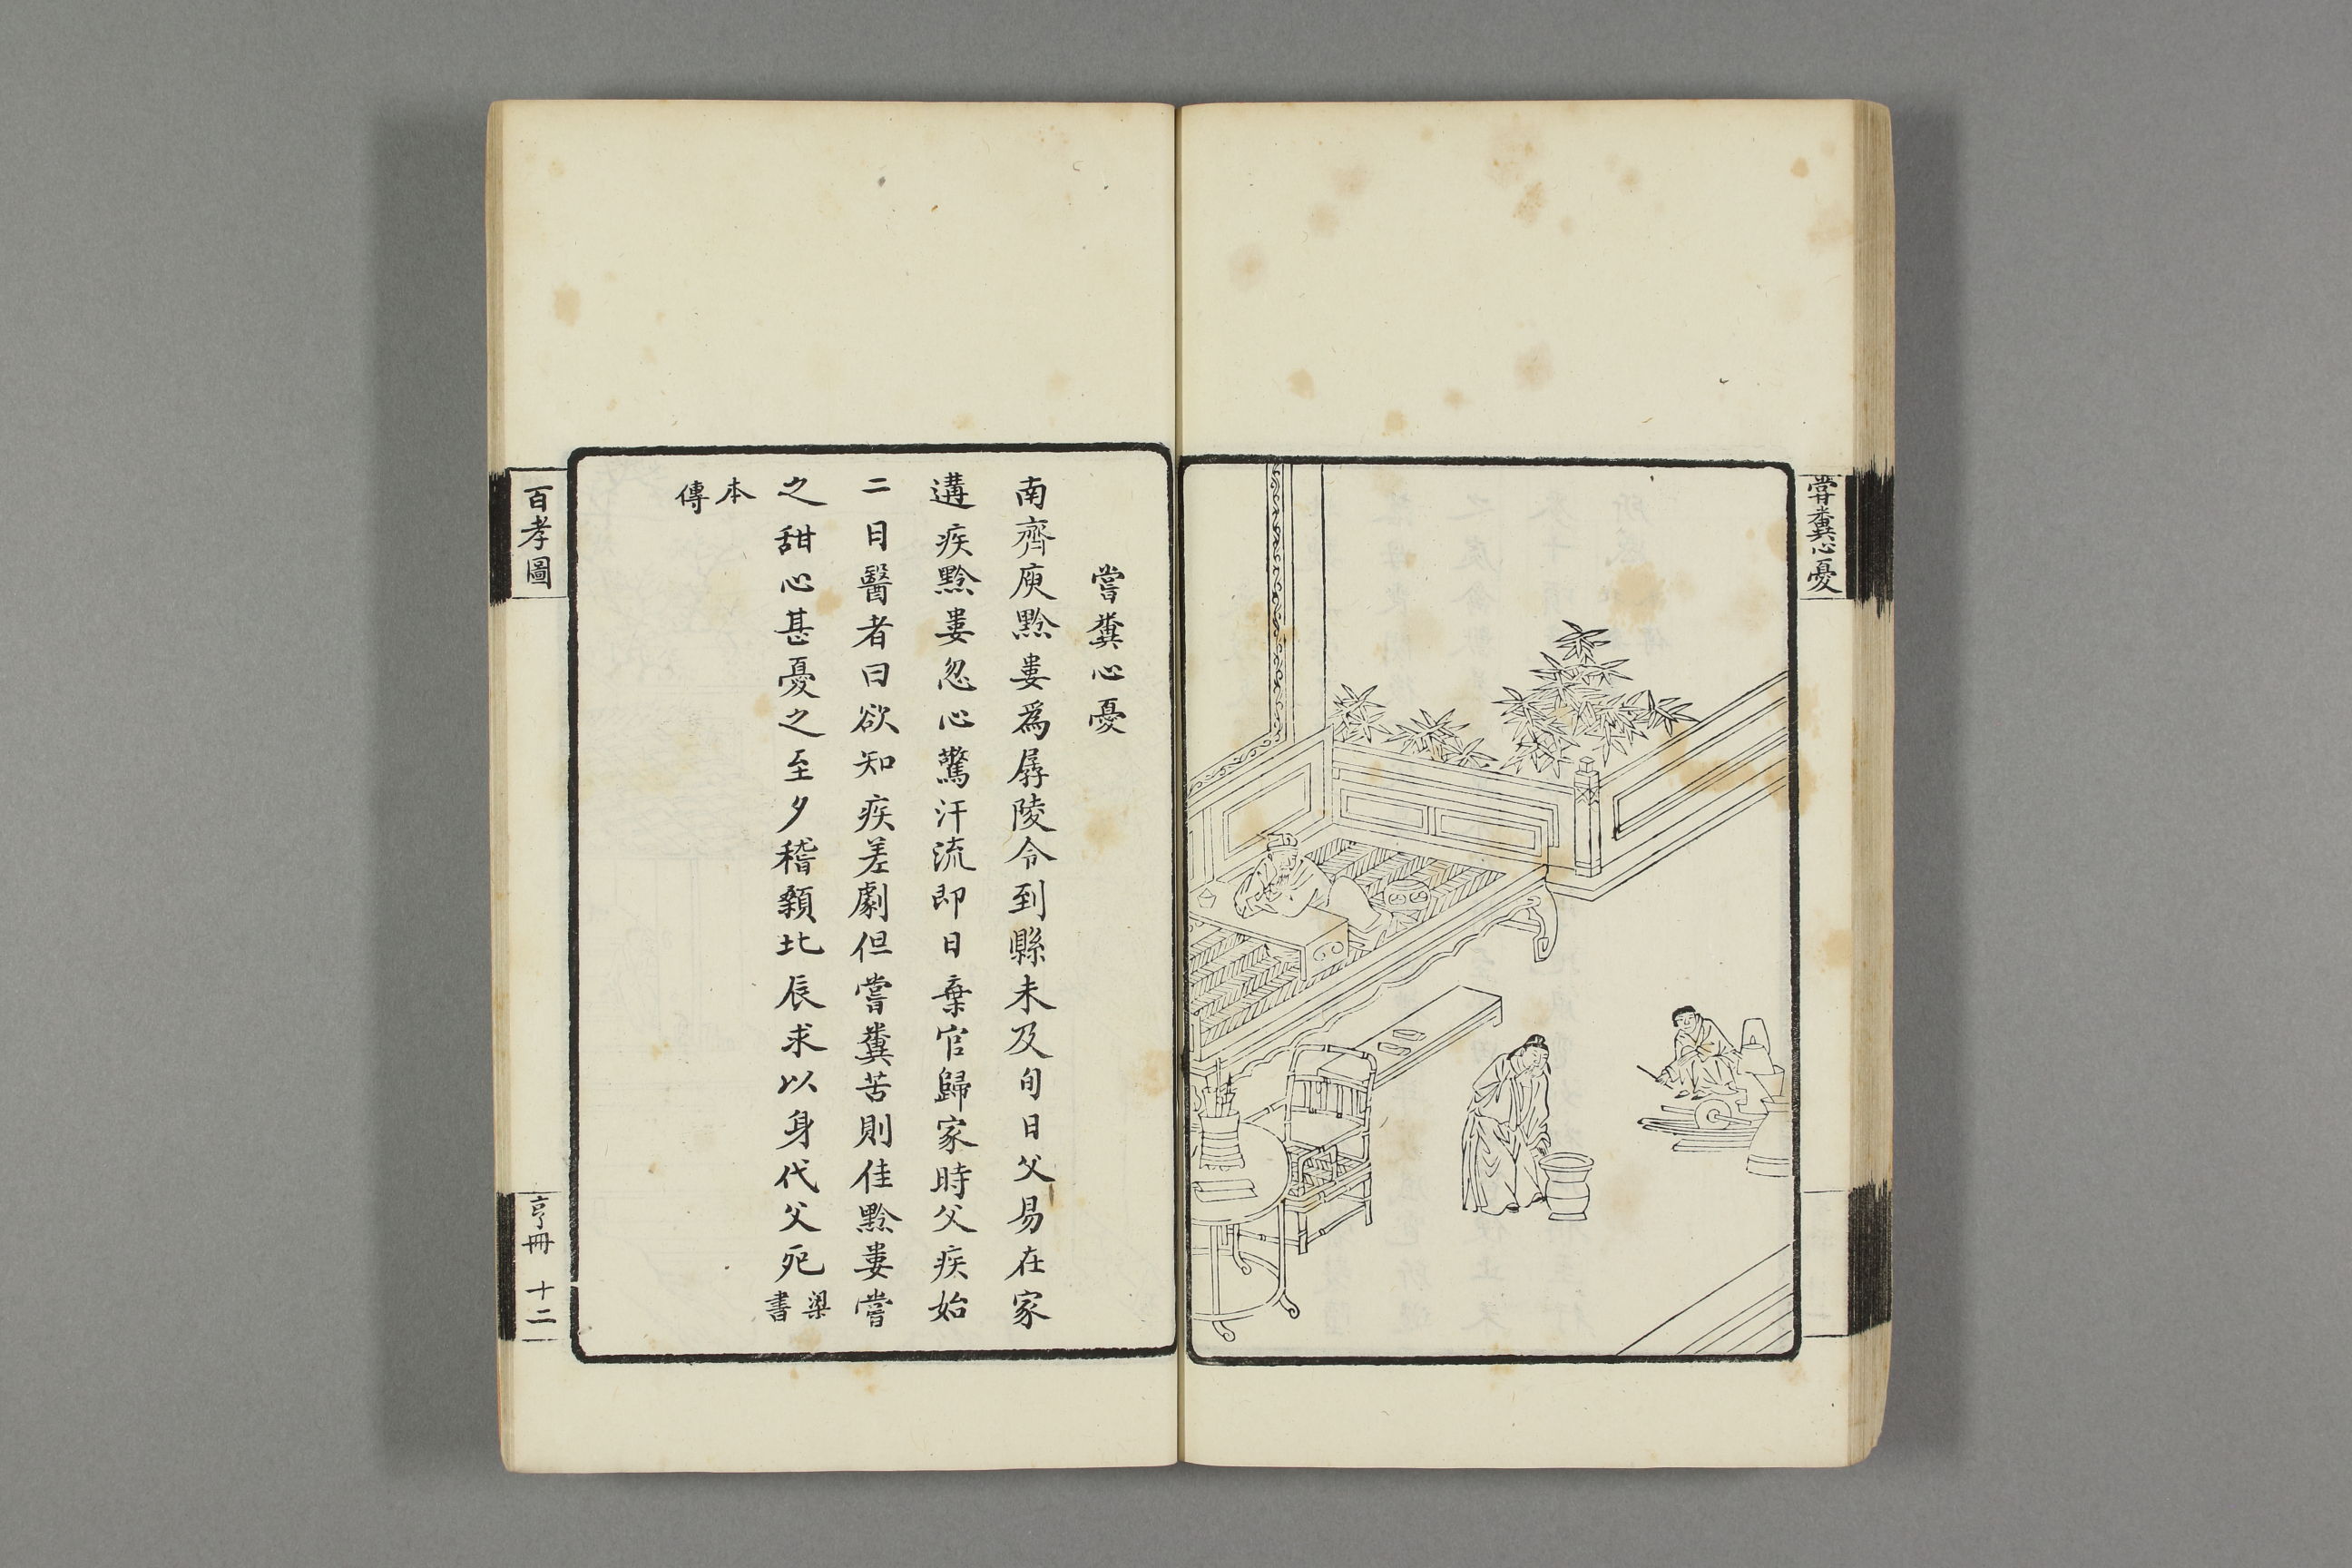 嘗糞心憂
嘗糞心憂
南齊庾黔婁爲孱陵令到縣未及旬日父易在家
遘疾黔婁忽心驚汗流即日棄官歸家時父疾始
二日醫者曰欲知疾差劇但嘗糞苦則佳黔婁嘗
之甜心甚憂之至夕稽顙北辰求以身代父死梁書
本傳
百孝圖
亨冊 十二